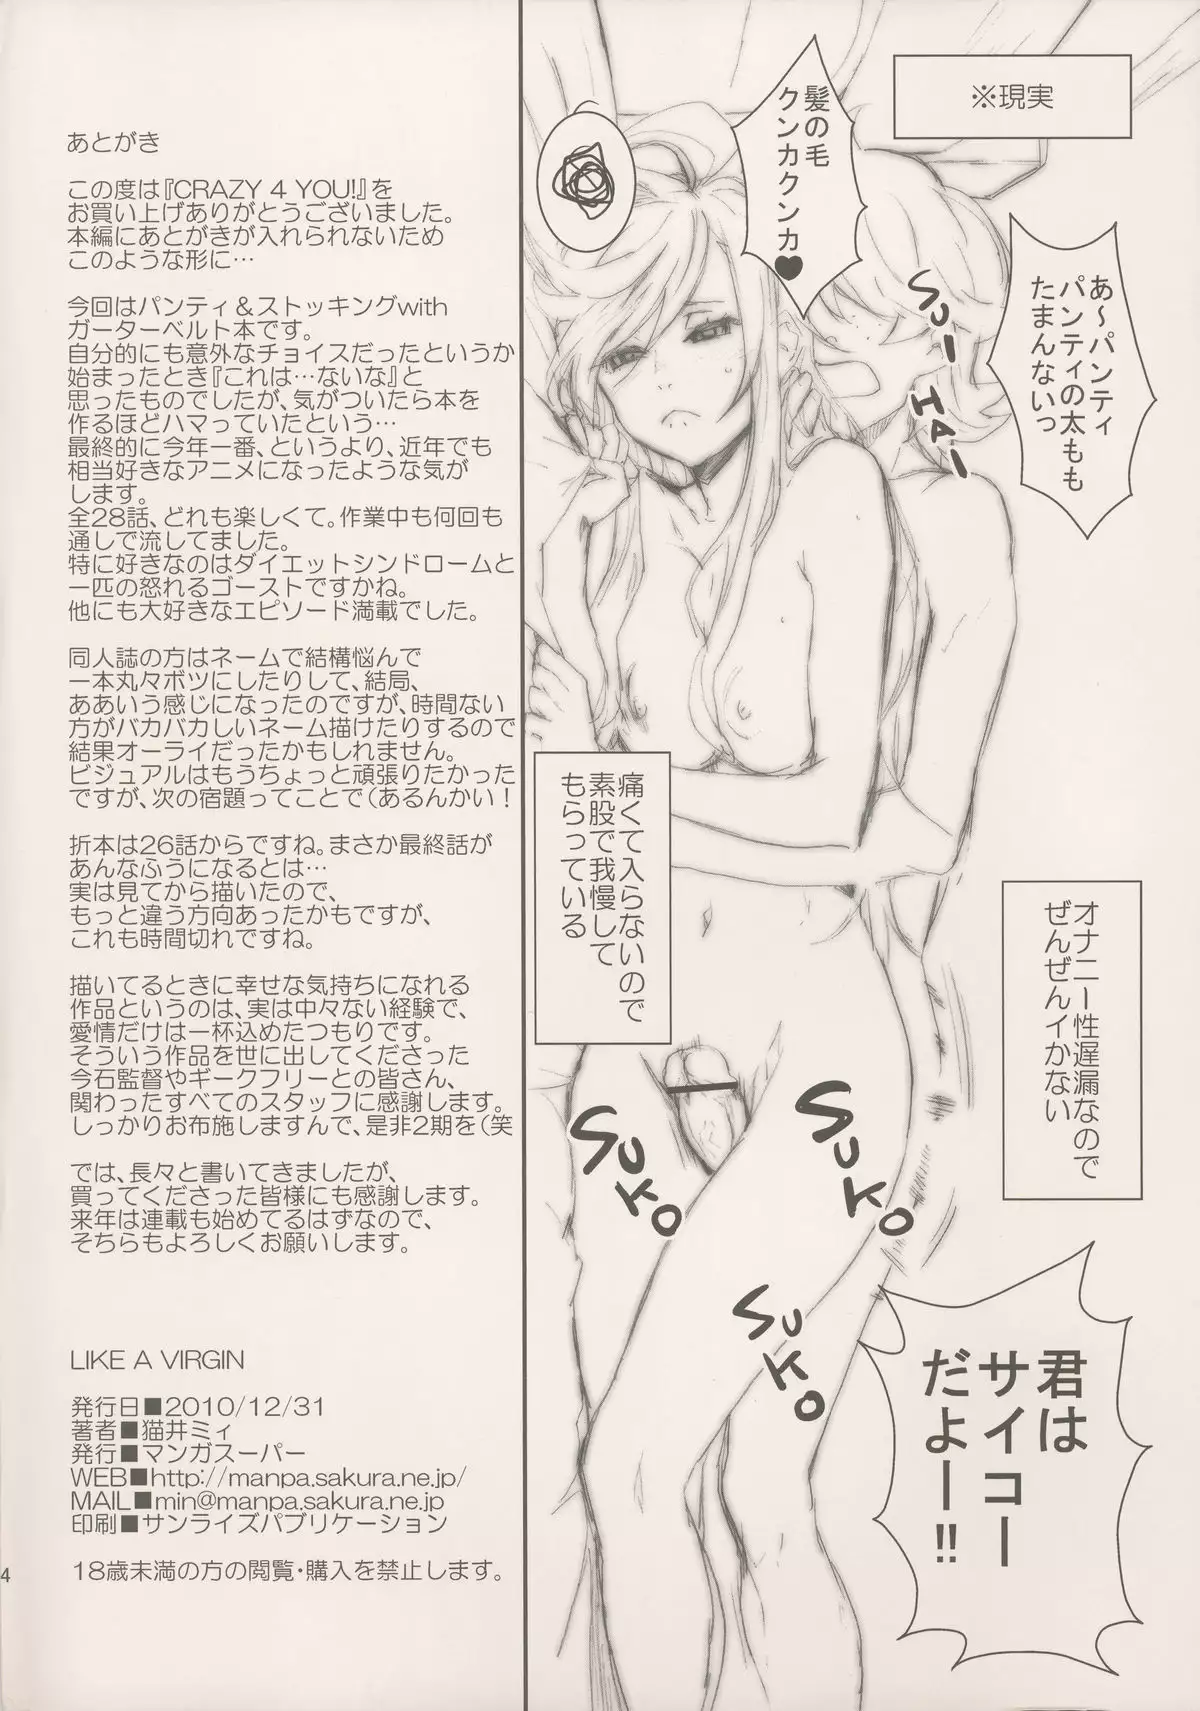 ※現実
髪の毛
クンカクンカ♥
あ〜パンティ
パンティの太もも
たまんないっ
SUーHAー
痛くて入らないので
素股で我慢して
もらっている
オナニー性遅漏なので
ぜんぜんイかない
SUKO
SUKO
SUKO
君は
サイコー
だよー!!
あとがき
この度は『CRAZY 4 YOU!』を
お買い上げありがとうございました。
本編にあとがきが入れられないため
このような形に…
今回はパンティ＆ストッキングwith
ガーターベルト本です。
自分的にも意外なチョイスだったというか
始まったとき『これは…ないな』と
思ったものでしたが、気がついたら本を
作るほどハマっていたという…
最終的に今年一番、というより、近年でも
相当好きなアニメになったような気が
します。
全28話、どれも楽しくて。作業中も何回も
通しで流してました。
特に好きなのはダイエットシンドロームと
一匹の怒れるゴーストですかね。
他にも大好きなエピソード満載でした。
同人誌の方はネームで結構悩んで
一本丸々ボツにしたりして、結局、
ああいう感じになったのですが、時間ない
方がバカバカしいネーム描けたりするので
結果オーライだったかもしれません。
ビジュアルはもうちょっと頑張りたかった
ですが、次の宿題ってことで（あるんかい！
折本は26話からですね。まさか最終話が
あんなふうになるとは…
実は見てから描いたので、
もっと違う方向あったかもですが、
これも時間切れですね。
描いてるときに幸せな気持ちになれる
作品というのは、実は中々ない経験で、
愛情だけは一杯込めたつもりです。
そういう作品を世に出してくださった
今石監督やギークフリートの皆さん、
関わったすべてのスタッフに感謝します。
しっかりお布施しますんで、是非2期を（笑
では、長々と書いてきましたが、
買ってくださった皆様にも感謝します。
来年は連載も始めてるはずなので、
そちらもよろしくお願いします。
LIKE A VIRGIN
発行日■2010/12/31
著者■猫井ミィ
発行■マンガスーパー
WEB■http://manpa.sakura.ne.jp/
MAIL■min@manpa.sakura.ne.jp
印刷■サンライズパブリケーション
18歳未満の方の閲覧・購入を禁止します。
4